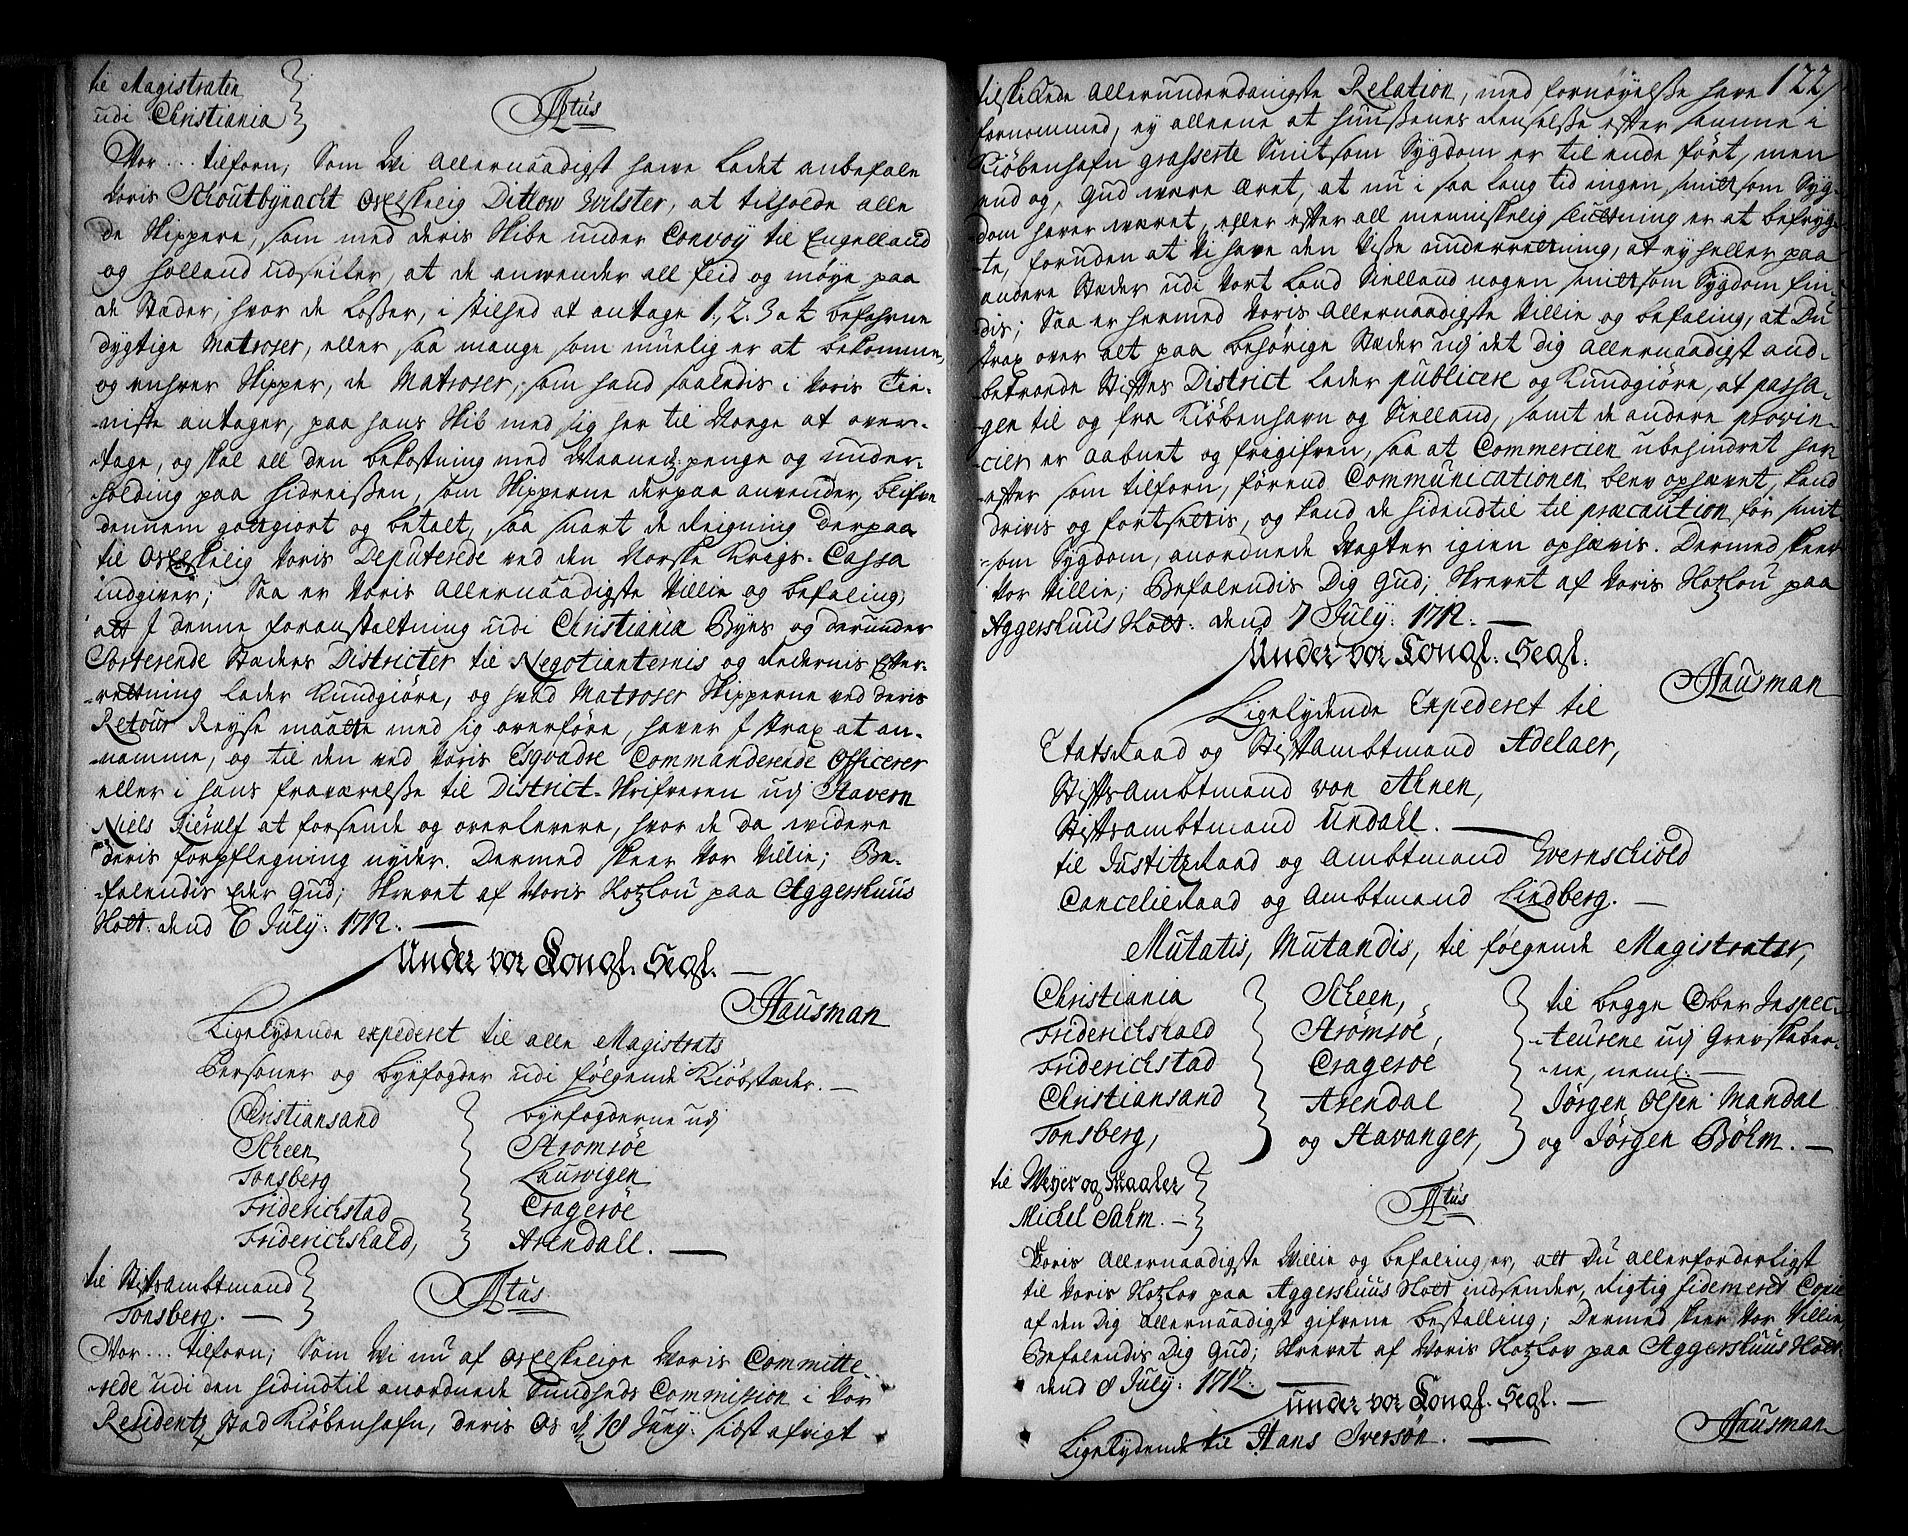 til Magistraten
udi Christiania
F4tus
Vor... tilforn, Som Wi Allernaadigst hawe ladet anbefale
Voris Schoutbynacht Oselskelig Ditlow Wilster, at tilholde alle
de Skippere, som med deris Skibe under Convoy til Engelland
og Holland udseiler, at de anwender all flid og møye paa
de Stæder, hvor de losser, i stilhed at antage 1, 2, 3 a 4 befahrne
dygtige Matroser, eller saa mange som muelig er at bekomme,
og enhver Skipper, de Matroser, som hand saaledis i Voris Tie-
niste antager, paa hans Skib med sig her til Norge at over-
tage, og skal all den bekostning med Maanedz penge og under-
holding paa hidreißen, som Skipperne derpaa anvender, blifve
dennem gottgiort og betalt, saa snart de Reigning derpaa
til Oselskelig Voris Deputerede ved den Norske Krigs-Cassa
indgiver; Saa er Voris Allernaadigste Villie og befaling,
att I denne foranstaltning udi Christiania Byes og derunder
Sorterende Stæders Districter til Negotianternis og Redernis Efter-
retning lader kundgiøre, og hvad Matroser Skipperne ved deris
Retour Reyse maatte med sig overføre, haver I strax at an-
namme, og til den ved Voris Esqvadre Commanderende Officerer
eller i hans fraværelße til District-Skrifveren udj Stavern
Niels Fierulf at forsende og overlevere, hvor de da widere
deris forpflegning nyder. Dermed skeer Vor Villie; Be-
falendis Eder Gud; Skrevet af Voris Slotzlou paa Aggershuus
Slott. dend 6 July: 1712.
Under vor Kongl. Segl.
Hausman
Ligelydende expederet til alle Magistrats
Personer og byefogder udi følgende Kiøbstæder.
Christiansand
Scheen
Tonsberg
Friderichstad
Friderichshald,
byefogderne udj
Strømsøe
Laurvigen
Cragerøe
Arendall.
til Stiftsambtmand
Tonsberg.
F4tus
Vor... tilforn; Som Wi nu af Oselskelige Voris Committe-
rede udi den hidindtil anordnede Sundheds Commission i Vor
Residentz Stad Kiøbenhafn, deris Os d. 18 Junij: sidst afvigt
122
tilskikede Allerunderdanigste Relation, med fornøyelße have
fornommed, ey alleene at Huußenes Renselße efter samme i
Kiøbenhafn grasserte Smitsom Sygdom er til ende ført, men
end og, Gud være æret, at nu i saa lang tid ingen smitsom Syg-
dom haver været, eller efter all menniskelig slutning er at befryg-
te, foruden at Vi have den Visse underretning, at ey heller paa
andere Stæder udi Vort Land Sielland nogen smitsom Sygdom fin-
dis; Saa er hermed Voris Allernaadigste Villie og befaling, at Du
strax over alt paa behørige Stæder udj det dig Allernaadigst and-
betroede Stiftes District lader publicere og kundgiøre, at passa-
gen til og fra Kiøbenhavn og Sielland, samt de andere provin-
cier er aabnet og frigifven, saa at Commercien ubehindret her-
efter som tilforn, førend Communicationen blev ophævet, kand
drivis og fortsettis, og kand de hidindtil til præcaution for smit-
som Sygdom, anordnede Vagter igien ophævis. Dermed skeer
Vor Villie; Befalendis Dig Gud; Skrevet af Voris Slotzlou paa
Aggershuus Slott: dend 7 July: 1712.
Under vor Kongl. Segl.
Hausman
Ligelydende Expederet til
Etatsraad og Stiftambtmand Adelaer,
Stiftsambtmand von Ahnen,
Stiftsambtmand Undall.
til Justitzraad og Ambtmand Wernschiold
Cancelieraad og Ambtmand Lindberg.
Mutatis, Mutandis, til følgende Magistrater,
Christiania
Friderichshald
Friderichstad
Christiansand
Tonsberg,
Scheen,
Strømsøe,
Cragerøe
Arendal
og Stavanger,
til begge Ober Inspec-
teurene udj Grevskaber-
ne, neml.
Jørgen Olsen Mandal
og Jørgen Bøhm.
til Weyer og Maaler
Michel Sahm.
F4tus
Voris Allernaadigste Willie og befaling er, att Du allerforderligst
til Voris Slotzlov paa Aggershuus Slott indsender, Rigtig fidemered Copie
af den Dig Allernaadigst gifvene bestalling; Dermed skeer Vor Villie,
Befalendis Dig Gud; Skrevet af Woris Slotzlov paa Aggershuus Slott
dend 8 July: 1712.
under vor Kongl. Segl.
Hausman
Ligelydende til Hans Iversøn.